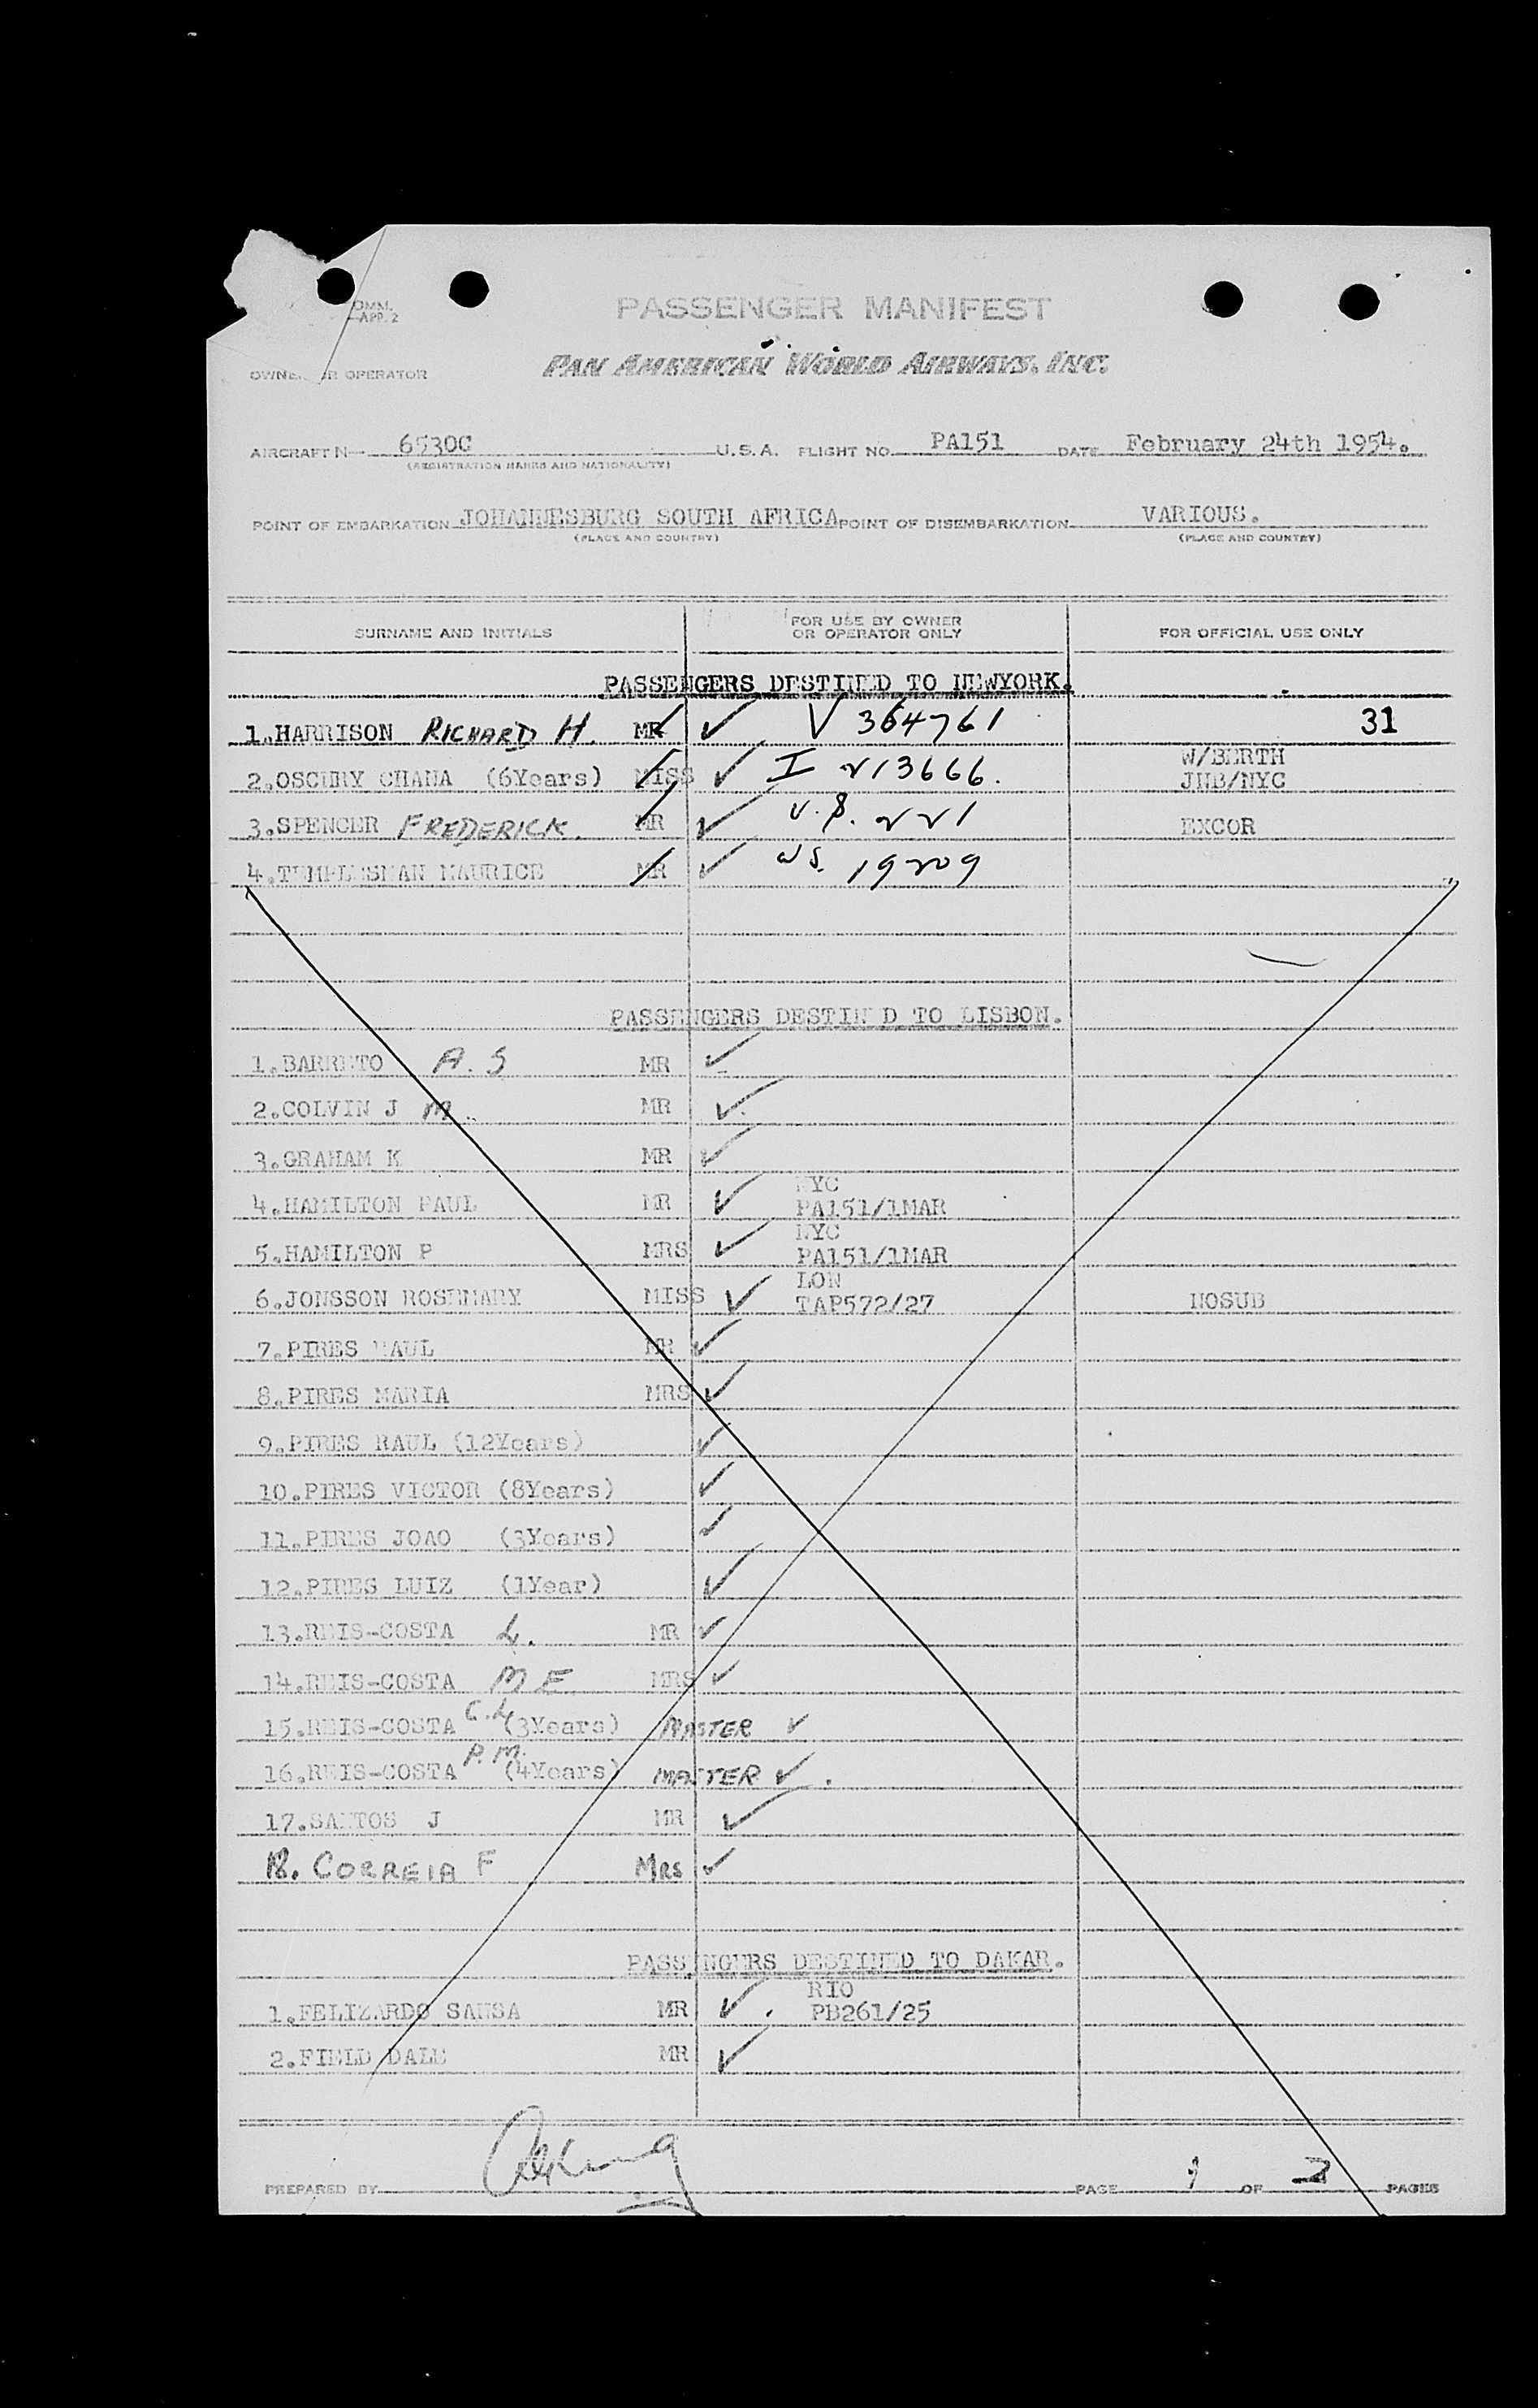 OMM.
APP. 2
PASSENGER MANIFEST
OWNER OR OPERATOR PAN AMERICAN WORLD AIRWAYS, INC.
AIRCRAFT N 6530C U.S.A. FLIGHT NO. PA151 DATE February 24th 1954.
(REGISTRATION MARKS AND NATIONALITY)
POINT OF EMBARKATION JOHANNESBURG SOUTH AFRICA POINT OF DISEMBARKATION VARIOUS.
(PLACE AND COUNTRY) (PLACE AND COUNTRY)
SURNAME AND INITIALS FOR USE BY OWNER OR OPERATOR ONLY FOR OFFICIAL USE ONLY
PASSENGERS DESTINED TO NEWYORK.
1.HARRISON RICHARD H. MR ✓ V 364761 31
2.OSCHRY CHANA (6Years) MISS ✓ I 213666. W/BERTH JNB/NYC
3.SPENCER FREDERICK. MR ✓ 221 EXCOR
4.TEMPLESMAN MAURICE MR ✓ 19209
PASSENGERS DESTINED TO LISBON.
1.BARRETO A. S MR ✓
2.COLVIN J M. MR ✓
3.GRAHAM K MR ✓
4.HAMILTON PAUL MR ✓ NYC PA151/1MAR
5.HAMILTON P MRS ✓ NYC PA151/1MAR
6.JONSSON ROSEMARY MISS ✓ LON TAP572/27 NOSUB
7.PIRES RAUL MR ✓
8.PIRES MARIA MRS ✓
9.PIRES RAUL (12Years) ✓
10.PIRES VICTOR (8Years) ✓
11.PIRES JOAO (3Years) ✓
12.PIRES LUIZ (1Year) ✓
13.REIS-COSTA L. MR ✓
14.REIS-COSTA M E. MRS ✓
15.REIS-COSTA C.L. (3Years) MASTER ✓
16.REIS-COSTA P.M. (4Years) MASTER ✓.
17.SANTOS J MR ✓
18. CORREIA F MRS ✓
PASSENGERS DESTINED TO DAKAR.
1.FELIZARDO SANSA MR ✓. RIO PB261/25
2.FIELD DALE MR ✓
PREPARED BY PAGE 1 OF 2 PAGES